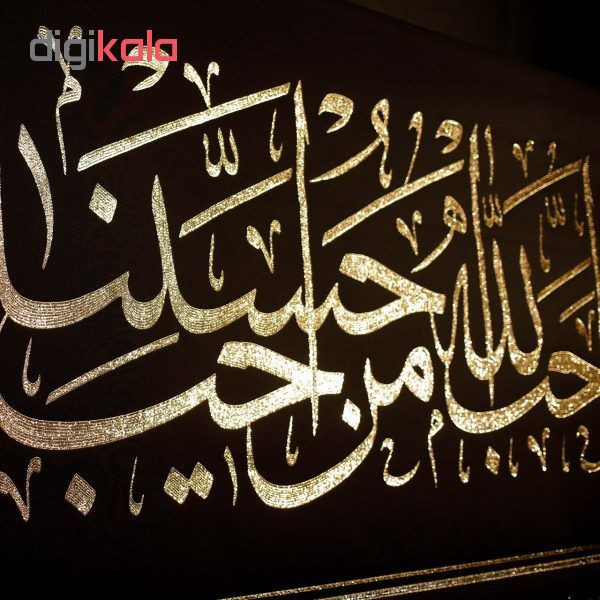 digikala
احب الله من احب حسینا